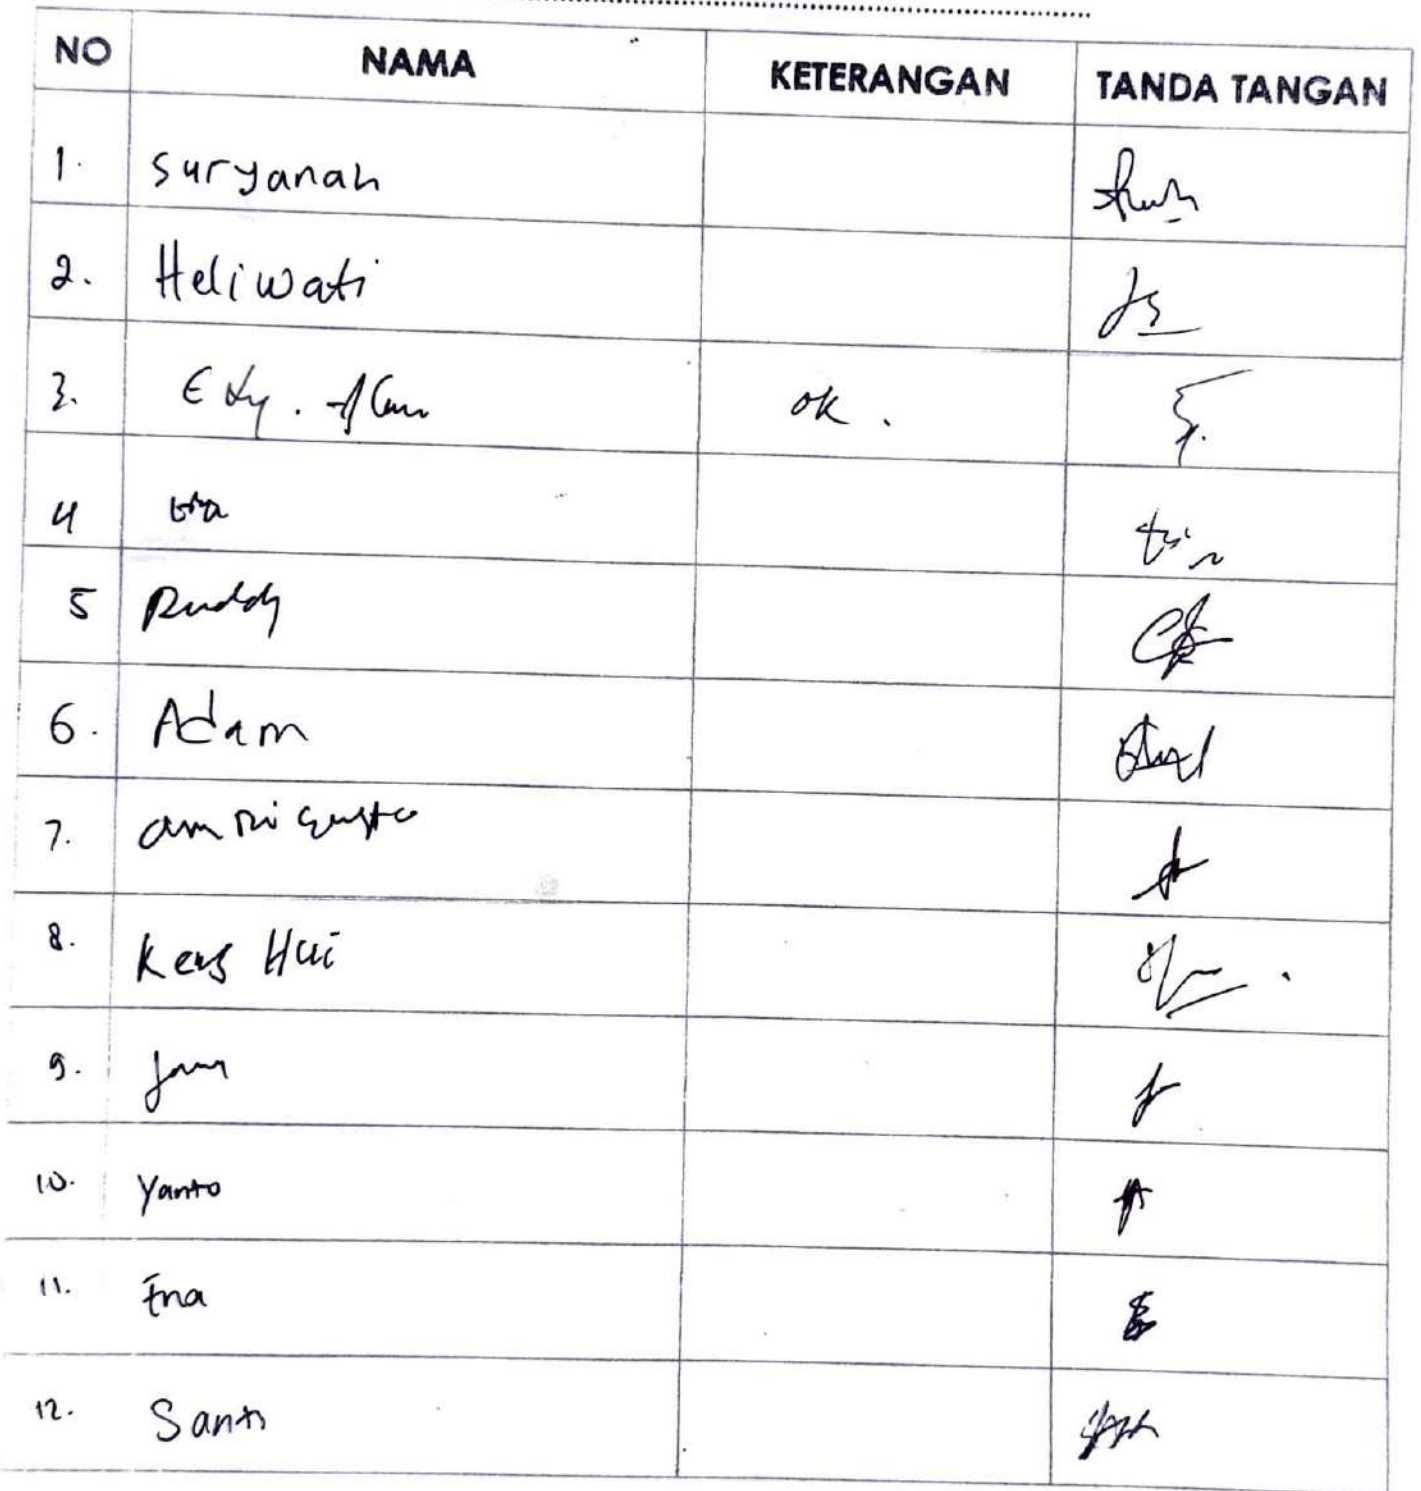 NO NAMA KETERANGAN TANDA TANGAN
1. Suryanah
2. Heliwati
3. Edy. ok.
4
5 Ruddy
6. Adam
7. amri
8. Keng Hui
9.
10. Yanto
11. Ena
12. Santi